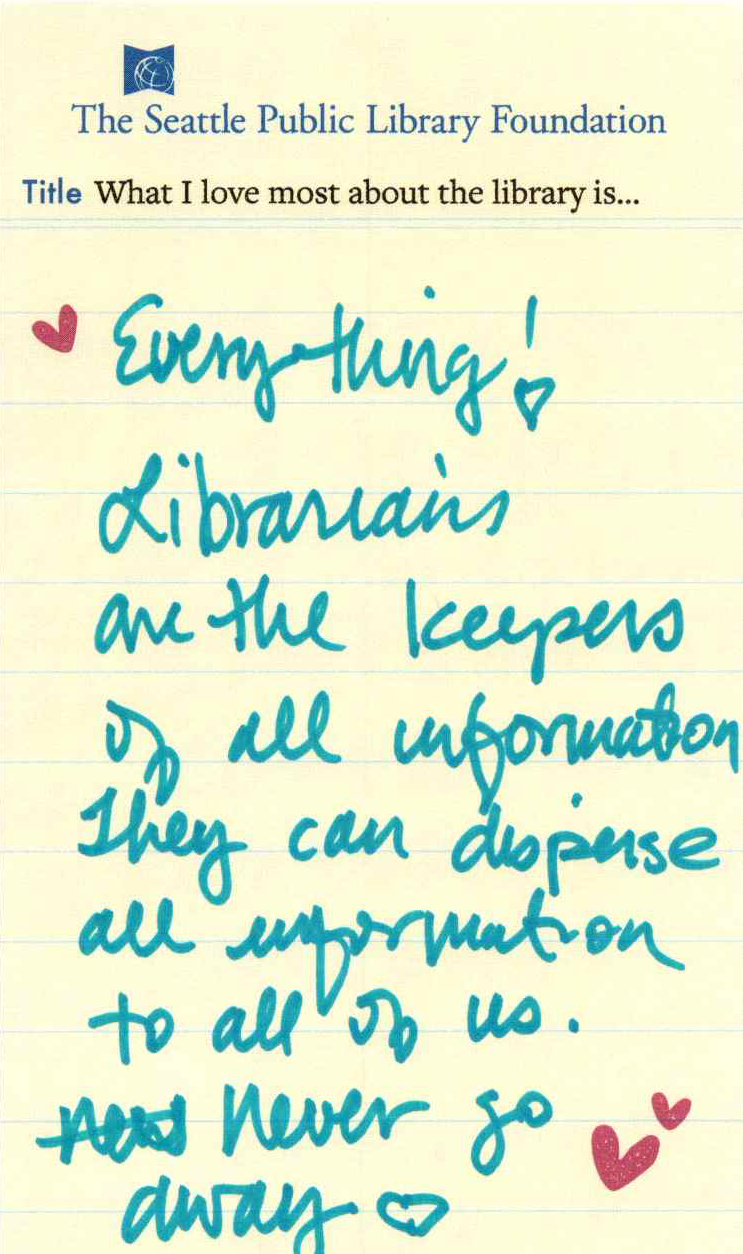 The Seattle Public Library Foundation
Title What I love most about the library is...
Everything!
Librarians
are the keepers
of all information
They can disperse
all information
to all of us.
Never go
away